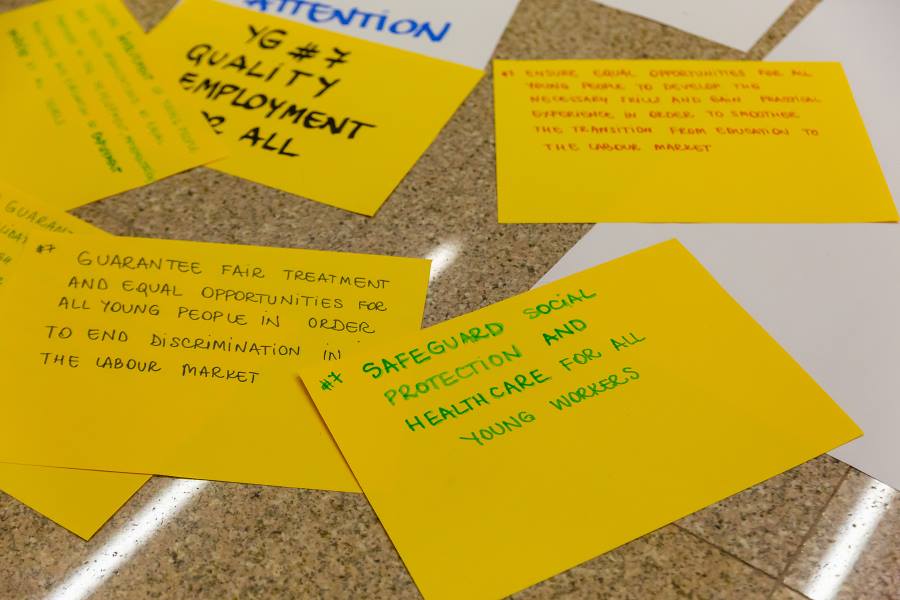 ATTENTION
YG #7
QUALITY
EMPLOYMENT
ALL
#7 ENSURE EQUAL OPPORTUNITIES FOR ALL
YOUNG PEOPLE TO DEVELOP THE
NECESSARY SKILLS AND GAIN PRACTICAL
EXPERIENCE IN ORDER TO SMOOTHER
THE TRANSITION FROM EDUCATION TO
THE LABOUR MARKET
GUARAN
#7 GUARANTEE FAIR TREATMENT
AND EQUAL OPPORTUNITIES FOR
ALL YOUNG PEOPLE IN ORDER
TO END DISCRIMINATION IN
THE LABOUR MARKET
#7 SAFEGUARD SOCIAL
PROTECTION AND
HEALTHCARE FOR ALL
YOUNG WORKERS